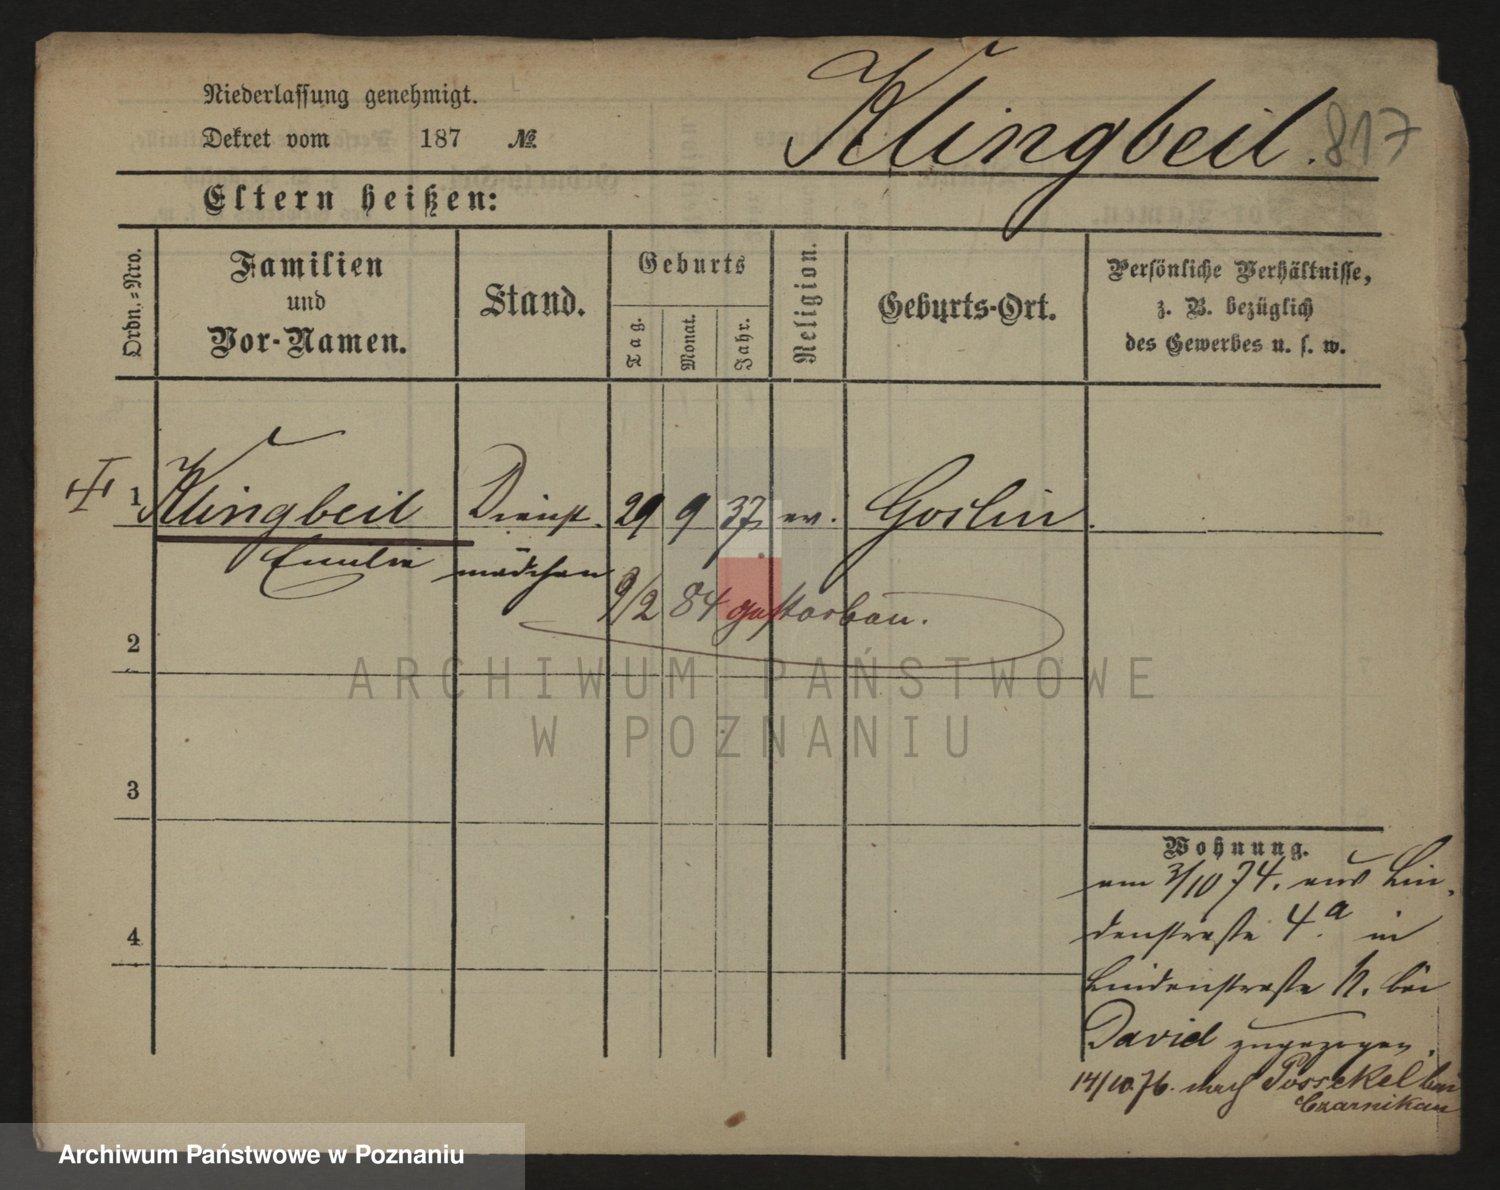 Niederlassung genehmigt.
Dekret vom 187 №
Klingbeil. 817
Eltern heißen:
Ordn.-Nro.
Familien
und
Vor-Namen.
Stand.
Geburts
Tag.
Monat.
Jahr.
Religion.
Geburts-Ort.
Persönliche Verhältnisse,
z. B. bezüglich
des Gewerbes u. s. w.
1 Klingbeil Dienst- 29 9 37 ev. Goslin
Emilie mädchen
9/2 84 gestorben.
2
3
4
Wohnung.
am 3/10 74. aus Lin-
denstraße 4.a in
Lindenstraße bei
David zugezogen.
14/10 76. nach Possekel bei
Czarnikau
ARCHIWUM PAŃSTWOWE
W POZNANIU
Archiwum Państwowe w Poznaniu